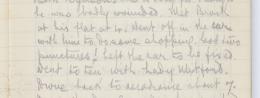 he was badly wounded. Met Brunk
at his flat at 10. Went off in the car
with him to do some shopping. Had two
punctures! Left the car to be fixed.
Went to tea with Lady Mitford.
Drove back to aerodrome about 7.